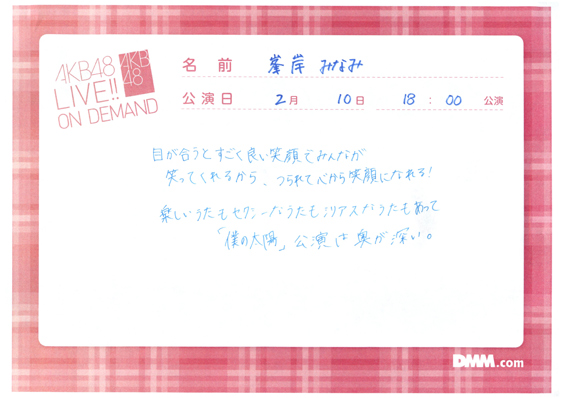 AKB48
LIVE!!
ON DEMAND
AKB
48
名前 峯岸 みなみ
公演日 2月 10日 18:00 公演
目が合うとすごく良い笑顔でみんなが
笑ってくれるから、つられて心から笑顔になれる!
楽しいうたもセクシーなうたもシリアスなうたもあって
「僕の太陽」公演は奥が深い。
DMM.com